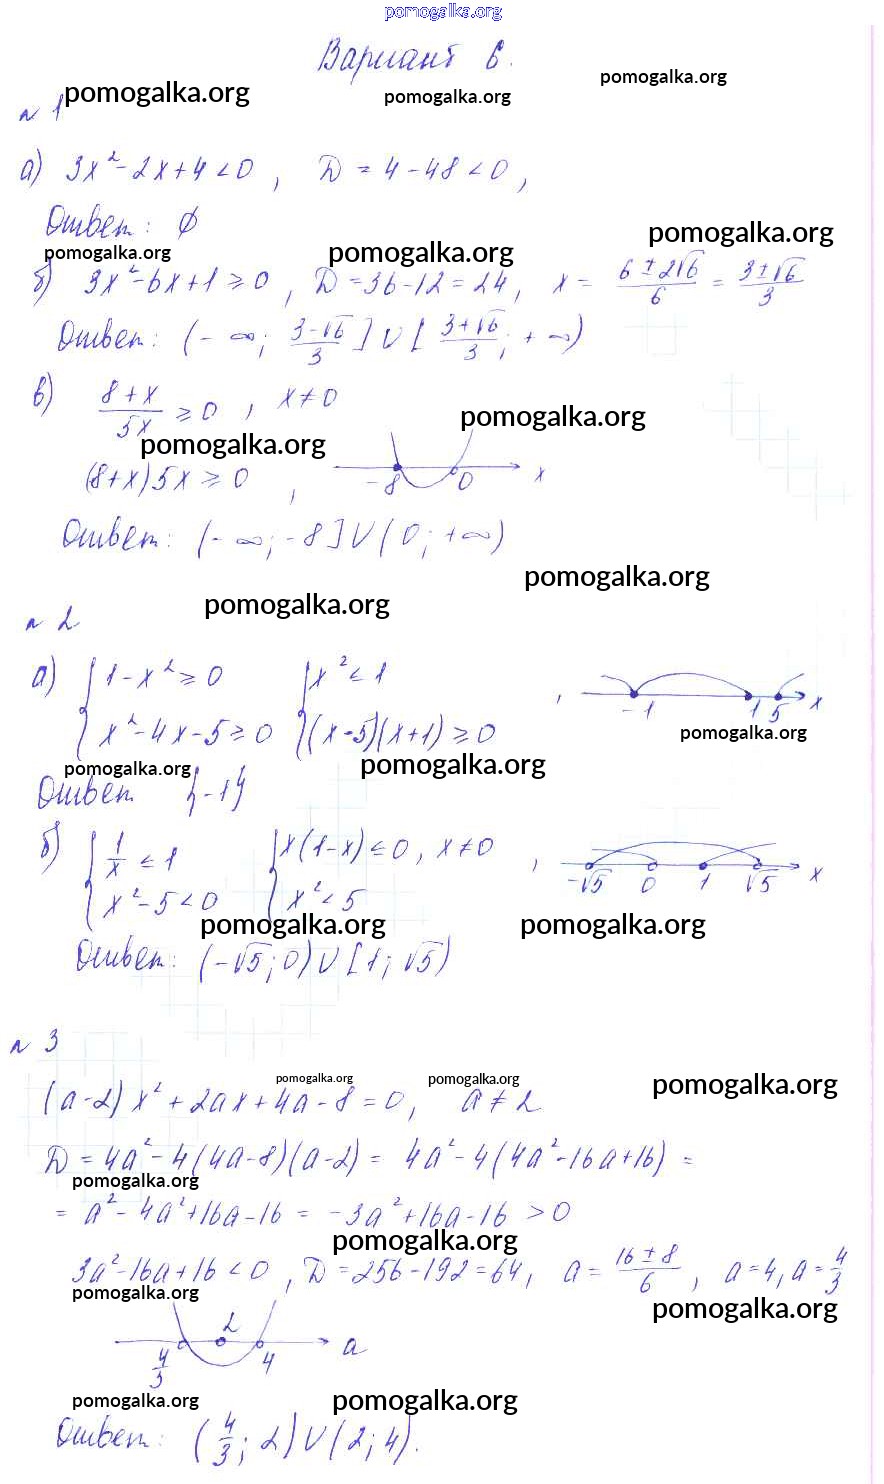 pomogalka.org
Вариант 6.
pomogalka.org
pomogalka.org pomogalka.org
№ 1
а) 3x² - 2x + 4 < 0, D = 4 - 48 < 0,
Ответ: ∅
pomogalka.org pomogalka.org pomogalka.org
б) 3x² - 6x + 1 ≥ 0, D = 36 - 12 = 24, x = (6 ± 2√6)/6 = (3 ± √6)/3
Ответ: (-∞; (3-√6)/3] ∪ [(3+√6)/3; +∞)
в) (8+x)/5x ≥ 0, x ≠ 0
pomogalka.org pomogalka.org
(8+x)5x ≥ 0, -8 0 x
Ответ: (-∞; -8] ∪ (0; +∞)
pomogalka.org pomogalka.org
№ 2
а) { 1 - x² ≥ 0 { x² ≤ 1
x² - 4x - 5 ≥ 0 (x-5)(x+1) ≥ 0 , -1 1 5 x
pomogalka.org
pomogalka.org pomogalka.org
Ответ {-1}
б) { 1/x ≤ 1 { x(1-x) ≤ 0, x ≠ 0
x² - 5 < 0 x² < 5 , -√5 0 1 √5 x
pomogalka.org pomogalka.org
Ответ: (-√5; 0) ∪ [1; √5)
№ 3
pomogalka.org pomogalka.org pomogalka.org
(a-2)x² + 2ax + 4a - 8 = 0, a ≠ 2
D = 4a² - 4(4a-8)(a-2) = 4a² - 4(4a² - 16a + 16) =
pomogalka.org
= a² - 4a² + 16a - 16 = -3a² + 16a - 16 > 0
pomogalka.org
3a² - 16a + 16 < 0, D = 256 - 192 = 64, a = (16 ± 8)/6, a = 4, a = 4/3
pomogalka.org pomogalka.org
4/3 2 4 a
pomogalka.org pomogalka.org
Ответ: (4/3; 2) ∪ (2; 4).